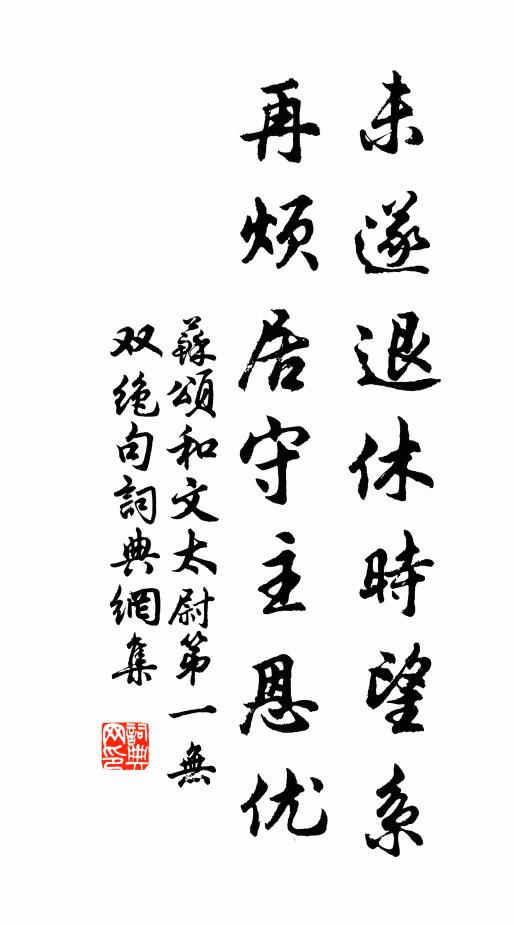 未遂退休時望系
再烦居守主恩优
蘇頌和文太尉第一無
双绝句詞典網集
詞典
网印